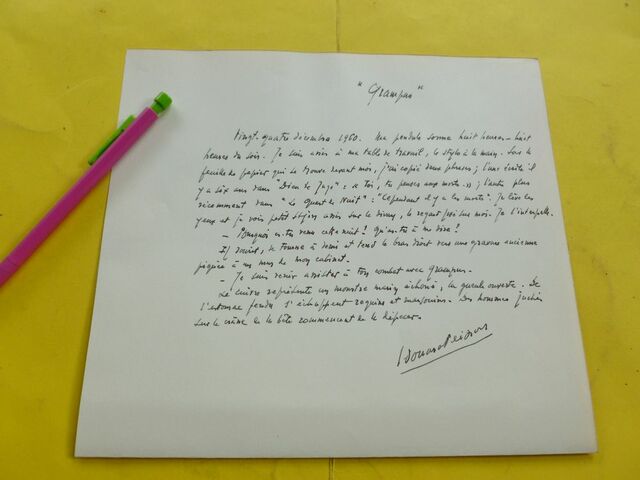 "Grampus"
Vingt-quatre décembre 1960. Ma pendule sonne huit heures - huit
heures du soir. Je suis assis à ma table de travail, le stylo à la main. Sur la
feuille de papier qui se trouve devant moi, j'ai copié deux phrases ; l'une écrite il
y a dix ans dans : "Toi, tu penses aux morts" ; l'autre plus
récemment dans "Le Quart de Nuit" : "Cependant il y a les morts". Je lève les
yeux et je vois petit assis sur le divan, le regard fixé sur moi. Je l'interpelle.
- Pourquoi es-tu venu cette nuit ? Qu'as-tu à me dire ?
Il sourit, se tourne à demi et tend le bras droit vers une gravure ancienne
piquée à un mur de mon cabinet.
- Je suis venu assister à ton combat avec Grampus.
Le cuivre représente un monstre marin échoué, la gueule ouverte. De
l'estomac fendu s'échappent requins et marsouins. Des hommes juchés
sur le crâne de la bête commencent de le dépecer.
Edouard Peisson